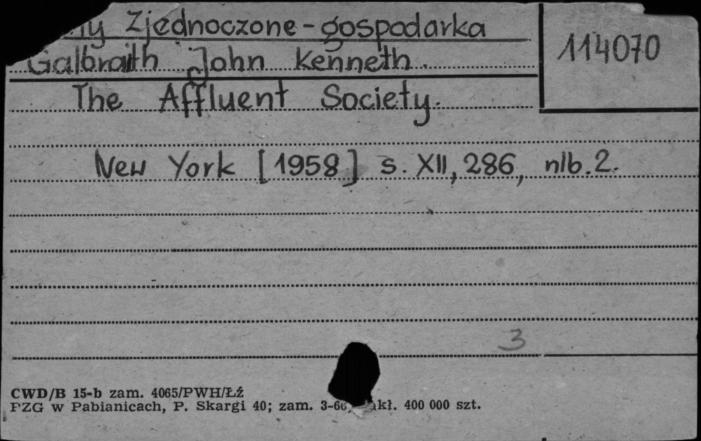 Zjednoczone - gospodarka
114070
Galbraith John Kenneth.
The Affluent Society.
New York [1958] s. XII, 286, nlb. 2.
3
CWD/B 15-b zam. 4065/PWH/Łź
PZG w Pabianicach, P. Skargi 40; zam. 400 000 szt.